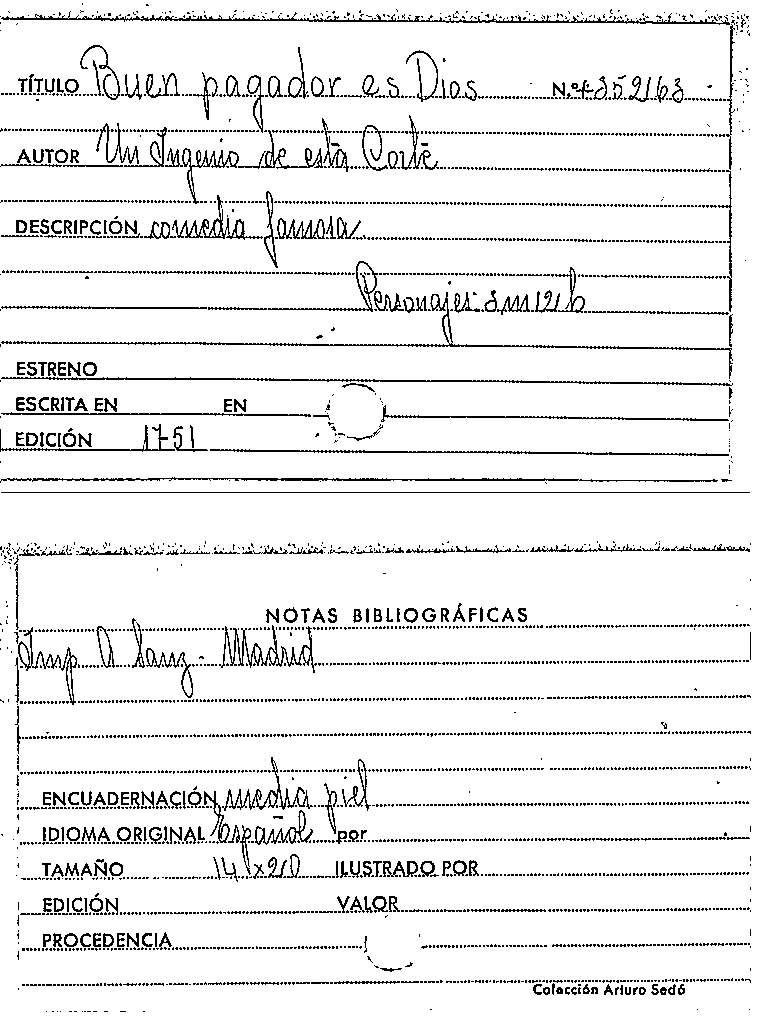 TÍTULO Buen pagador es Dios N.º
AUTOR Un Ingenio de esta Corte
DESCRIPCIÓN comedia famosa
Personajes
ESTRENO
ESCRITA EN EN
EDICIÓN 1751
NOTAS BIBLIOGRÁFICAS
Imp A Sanz - Madrid
ENCUADERNACIÓN media piel
IDIOMA ORIGINAL Español por
TAMAÑO ILUSTRADO POR
EDICIÓN VALOR
PROCEDENCIA
Colección Arturo Sedó